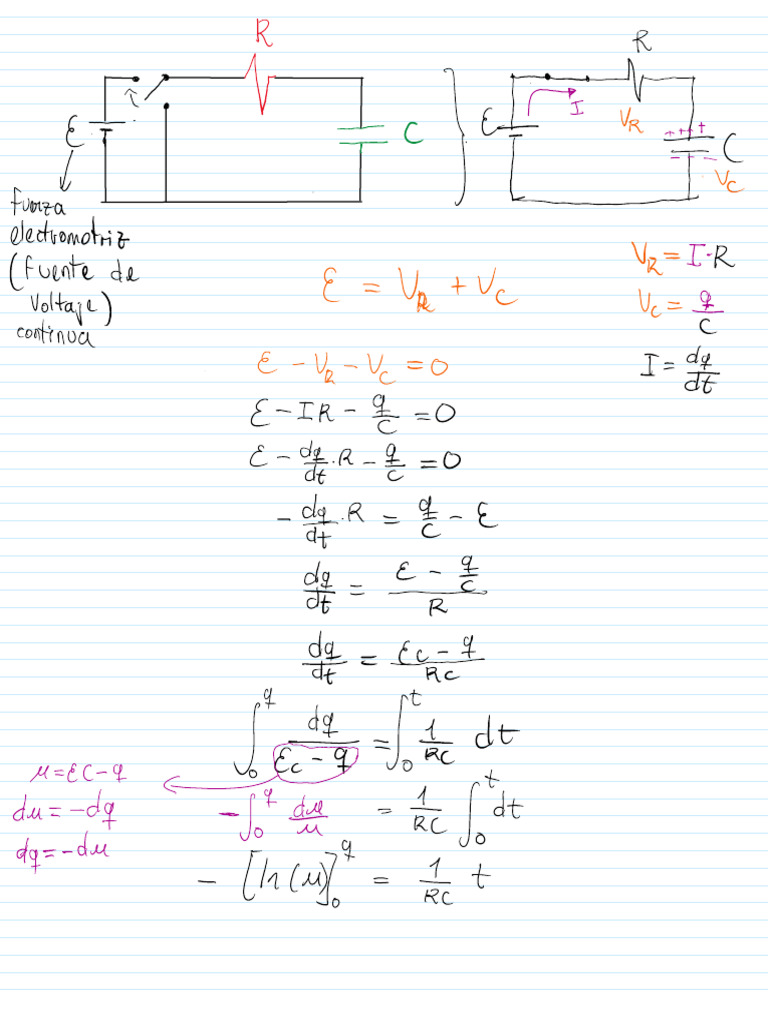 R
ε
C
fuerza
electromotriz
(fuente de
voltaje)
continua
R
ε
I
V_R
++++
C
---
V_C
ε = V_R + V_C
V_R = I·R
V_C = q/C
I = dq/dt
ε - V_R - V_C = 0
ε - IR - q/C = 0
ε - dq/dt·R - q/C = 0
- dq/dt·R = q/C - ε
dq/dt = (ε - q/C)/R
dq/dt = (εC - q)/RC
∫₀^q dq/(εC - q) = ∫₀^t 1/RC dt
μ = εC - q
dμ = -dq
dq = -dμ
-∫₀^q dμ/μ = 1/RC ∫₀^t dt
- [ln(μ)]₀^q = 1/RC t